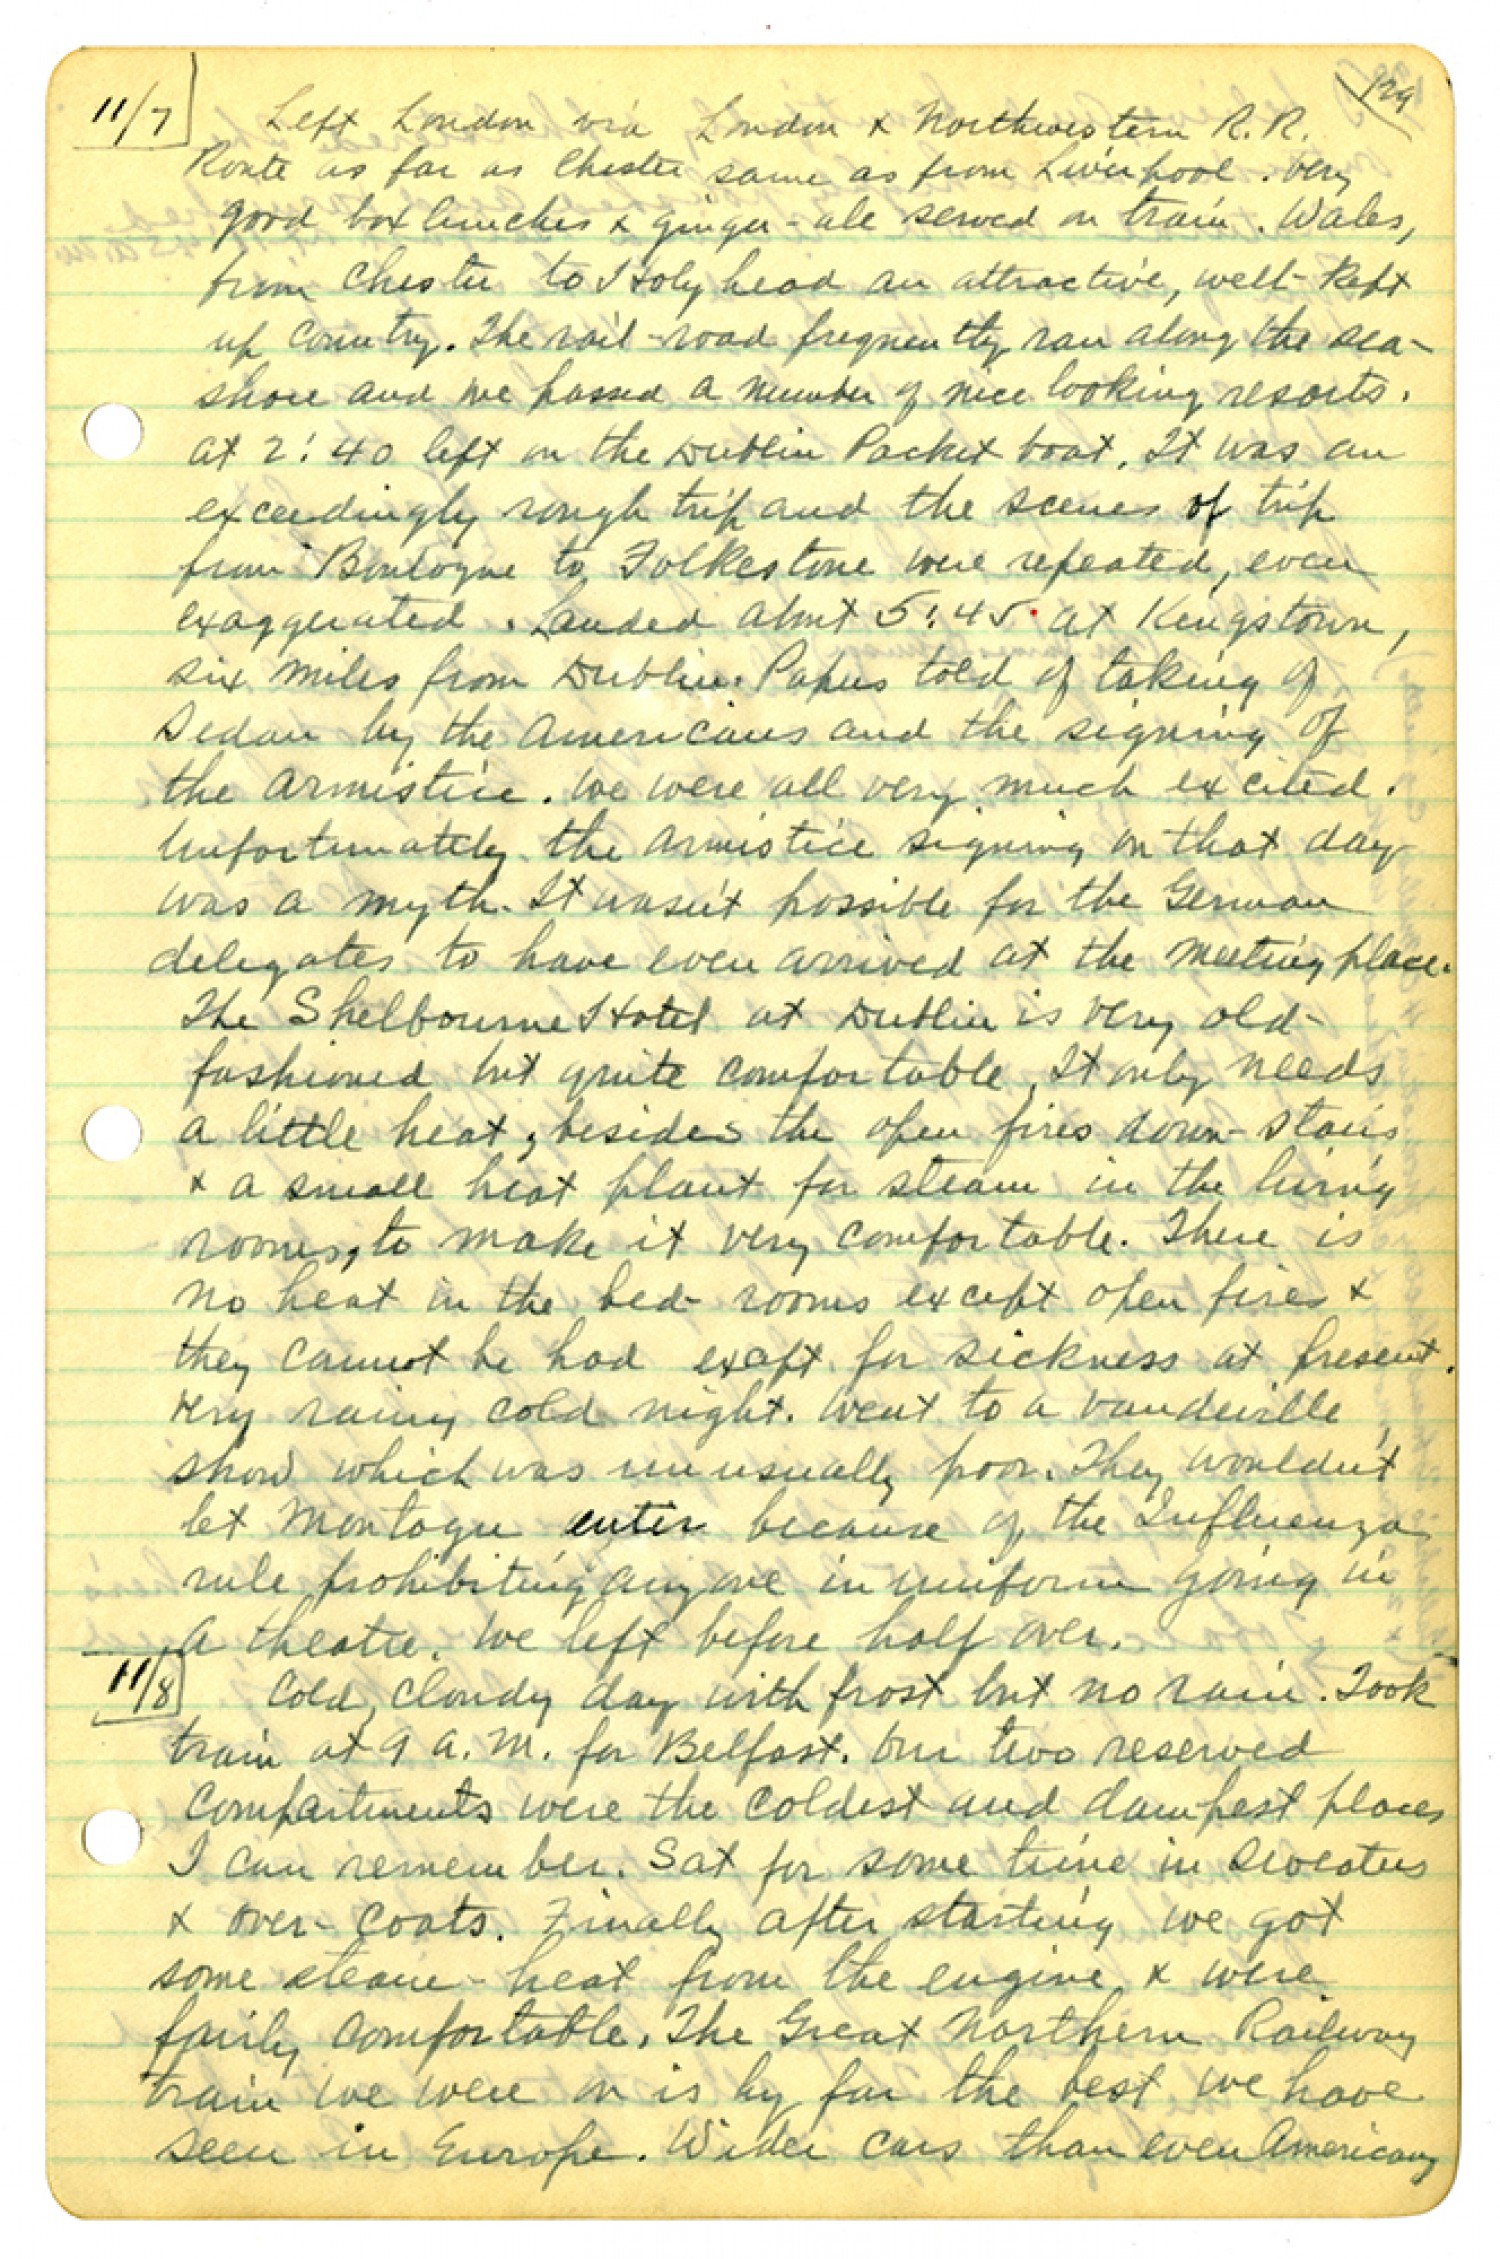 129
11/7 Left London via London & Northwestern R.R.
Route as far as Chester same as from Liverpool. Very
good box lunches & ginger-ale served on train. Wales,
from Chester to Holyhead an attractive, well-kept
up country. The rail-road frequently ran along the sea-
shore and we passed a number of nice looking resorts.
At 2:40 left on the Dublin Packet boat. It was an
exceedingly rough trip and the scenes of trip
from Boulogne to Folkestone were repeated, even
exaggerated. Landed about 5:45 at Kingstown,
six miles from Dublin. Papers told of taking of
Sedan by the Americans and the signing of
the Armistice. We were all very much excited.
Unfortunately the Armistice signing on that day
was a myth. It wasn't possible for the German
delegates to have even arrived at the meeting place.
The Shelbourne Hotel at Dublin is very old-
fashioned but quite comfortable. It only needs
a little heat, besides the open fires down-stairs
& a small heat plant for steam in the living
rooms, to make it very comfortable. There is
no heat in the bed-rooms except open fires &
they cannot be had exept for sickness at present.
Very rainy cold night. Went to a vaudeville
show which was unusually poor. They wouldn't
let Montague enter because of the Influenza
rule prohibiting anyone in uniform going in
a theatre. We left before half over.
11/8 Cold, cloudy day with frost but no rain. Took
train at 9 A.M. for Belfast. Our two reserved
compartments were the coldest and dampest places
I can remember. Sat for some time in sweaters
& over-coats. Finally after starting we got
some steam-heat from the engine & were
fairly comfortable. The Great Northern Railway
train we were on is by far the best we have
seen in Europe. Wider cars than even Americans